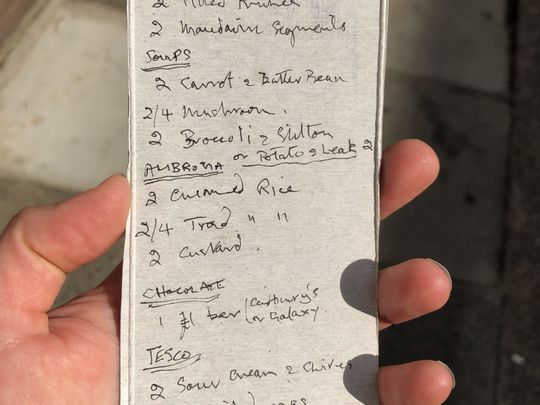 2 Mandarin Segments
SOUPS
2 Carrot & Butter Bean
2/4 Mushroom.
2 Broccoli & Stilton
or Potato & Leek 2
AMBROSIA
2 Creamed Rice
2/4 Trad " "
2 Custard.
CHOCOLATE
1 £1 bar (Cadbury's
or Galaxy.
TESCO
2 Sour Cream & Chives